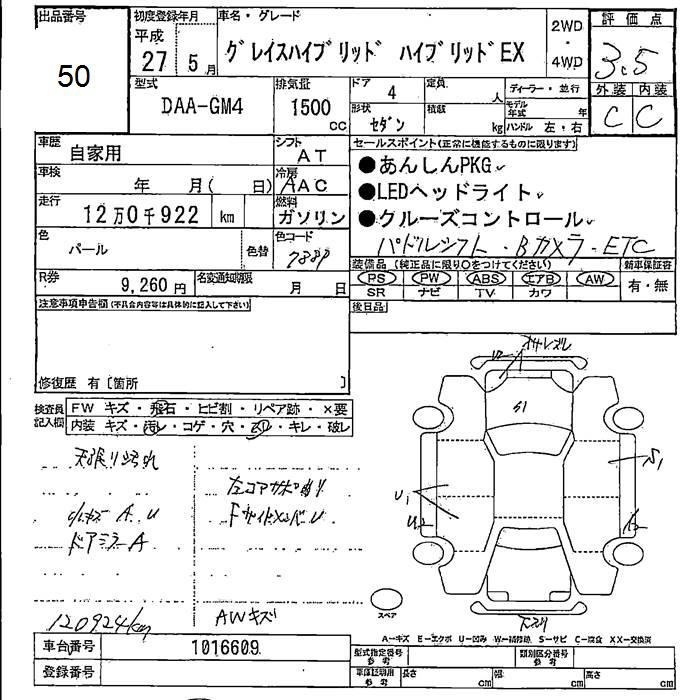 出品番号
50
初度登録年月
平成
27 5月
車名・グレード
グレイスハイブリッド ハイブリッドEX
2WD
・
4WD
評価点
3.5
外装 内装
C C
型式
DAA-GM4
排気量
1500
CC
ドア
4
形状
セダン
定員
人
積載
kg
ディーラー・並行
モデル年式 年
ハンドル 左・右
車歴
自家用
シフト
AT
車検
年 月( 日)
冷房
AAC
走行
12万0千922 km
燃料
ガソリン
色
パール
色替
色コード
R券
9,260円
名変通知期限
月 日
セールスポイント(正常に機能するものに限ります)
●あんしんPKG
●LEDヘッドライト
●クルーズコントロール
パドルシフト・Bカメラ・ETC
装備品(純正品に限り○をつけてください)
新車保証書
PS PW ABS エアB AW
有・無
SR ナビ TV カワ
後日品
注意事項申告欄(不具合内容等は具体的に記入して下さい)
修復歴 有〔箇所 〕
検査員記入欄
FW キズ・飛石・ヒビ割・リペア跡・×要
内装 キズ・汚レ・コゲ・穴・スリ・キレ・破レ
天張り汚れ
小キズ A.U
ドアミラーA
左コアサポ
FサイドメンバU
120924km
AWキズ
S1
S1
U1
U2
スペア
A-キズ E-エクボ U-凹み W-補修跡 S-サビ C-腐食 XX-交換済
車台番号
1016609
登録番号
型式指定番号
参考
類別区分番号
参考
車庫証明用
参考
長さ cm
幅 cm
高さ cm